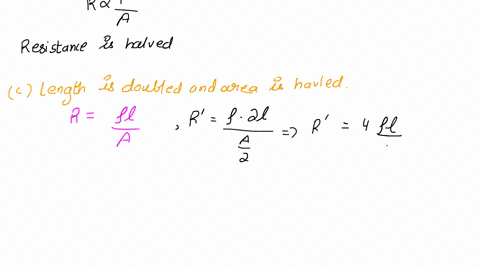 R ∝ 1/A
Resistance is halved
(c) Length is doubled and area is havled.
R = ρl/A , R' = ρ·2l/(A/2) => R' = 4 ρl